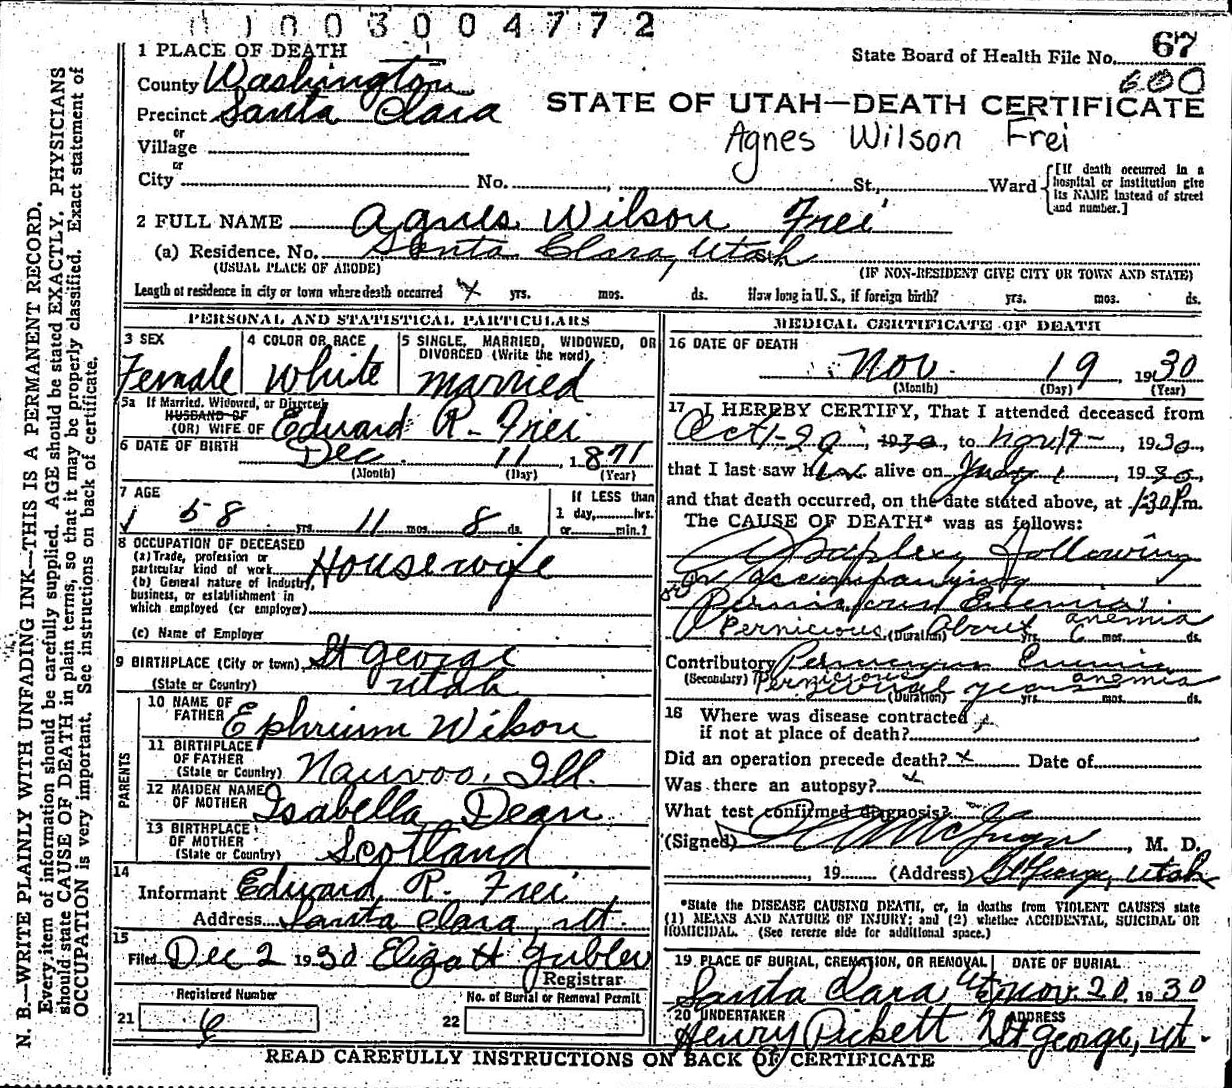 003004772
1 PLACE OF DEATH
State Board of Health File No. 67
County Washington
600
Precinct Santa Clara
STATE OF UTAH—DEATH CERTIFICATE
or
Village
Agnes Wilson Frei
or
City No. St., Ward
[If death occurred in a hospital or institution give its NAME instead of street and number.]
2 FULL NAME Agnes Wilson Frei
(a) Residence. No. Santa Clara, Utah
(USUAL PLACE OF ABODE) (IF NON-RESIDENT GIVE CITY OR TOWN AND STATE)
Length of residence in city or town where death occurred yrs. mos. ds. How long in U. S., if foreign birth? yrs. mos. ds.
PERSONAL AND STATISTICAL PARTICULARS
3 SEX
Female
4 COLOR OR RACE
White
5 SINGLE, MARRIED, WIDOWED, OR
DIVORCED (Write the word)
married
5a If Married, Widowed, or Divorced
HUSBAND OF
(OR) WIFE OF Edward R. Frei
6 DATE OF BIRTH Dec 11 1871
(Month) (Day) (Year)
7 AGE
58 yrs. 11 mos. 8 ds.
If LESS than
1 day, hrs.
or min.?
8 OCCUPATION OF DECEASED
(a) Trade, profession or
particular kind of work Housewife
(b) General nature of industry,
business, or establishment in
which employed (or employer)
(c) Name of Employer
9 BIRTHPLACE (City or town) St George
(State or Country) Utah
PARENTS
10 NAME OF
FATHER Ephrium Wilson
11 BIRTHPLACE
OF FATHER
(State or Country) Nauvoo, Ill.
12 MAIDEN NAME
OF MOTHER Isabella Dean
13 BIRTHPLACE
OF MOTHER
(State or Country) Scotland
14
Informant Edward R. Frei
Address Santa Clara, Ut.
15
Filed Dec 2 1930 Eliza H Gubler
Registrar
Registered Number
21 6
No. of Burial or Removal Permit
22
MEDICAL CERTIFICATE OF DEATH
16 DATE OF DEATH
Nov 19 1930
(Month) (Day) (Year)
17 I HEREBY CERTIFY, That I attended deceased from
Oct 1-29, 1930, to Nov 19 1930
that I last saw her alive on 1 1930,
and that death occurred, on the date stated above, at 130 P.m.
The CAUSE OF DEATH* was as follows:
Apoplexy Following
or accompanying
Enemia.
Pernicious anemia
(Duration) About yrs. 6 mos. ds.
Contributory Enemia
(Secondary) Pernicious anemia
(Duration) years yrs. mos. ds.
18 Where was disease contracted
if not at place of death?
Did an operation precede death? x Date of
Was there an autopsy?
What test confirmed diagnosis?
(Signed) , M. D.
, 19 (Address) St George, Utah
*State the DISEASE CAUSING DEATH, or, in deaths from VIOLENT CAUSES state
(1) MEANS AND NATURE OF INJURY; and (2) whether ACCIDENTAL, SUICIDAL OR
HOMICIDAL. (See reverse side for additional space.)
19 PLACE OF BURIAL, CREMATION, OR REMOVAL
Santa Clara Ut
DATE OF BURIAL
Nov. 20 1930
20 UNDERTAKER
Henry Pickett
ADDRESS
St George, Ut.
READ CAREFULLY INSTRUCTIONS ON BACK OF CERTIFICATE
N. B.—WRITE PLAINLY WITH UNFADING INK—THIS IS A PERMANENT RECORD.
Every item of information should be carefully supplied. AGE should be stated EXACTLY. PHYSICIANS
should state CAUSE OF DEATH in plain terms, so that it may be properly classified. Exact statement of
OCCUPATION is very important. See instructions on back of certificate.